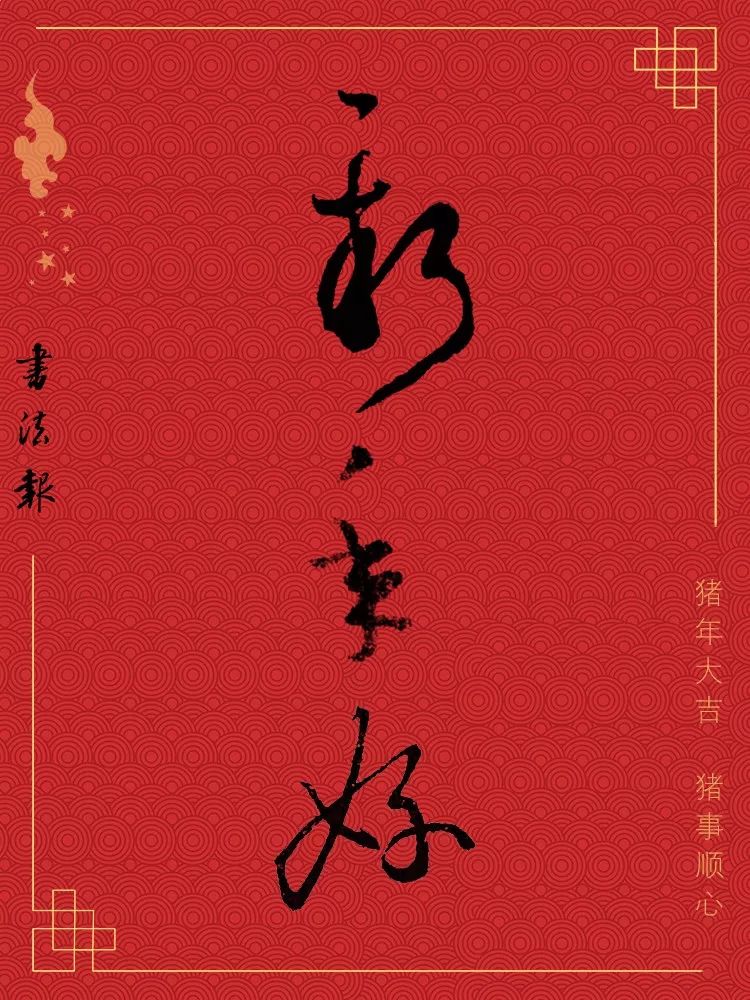 新年好
書法報
猪年大吉 猪事顺心